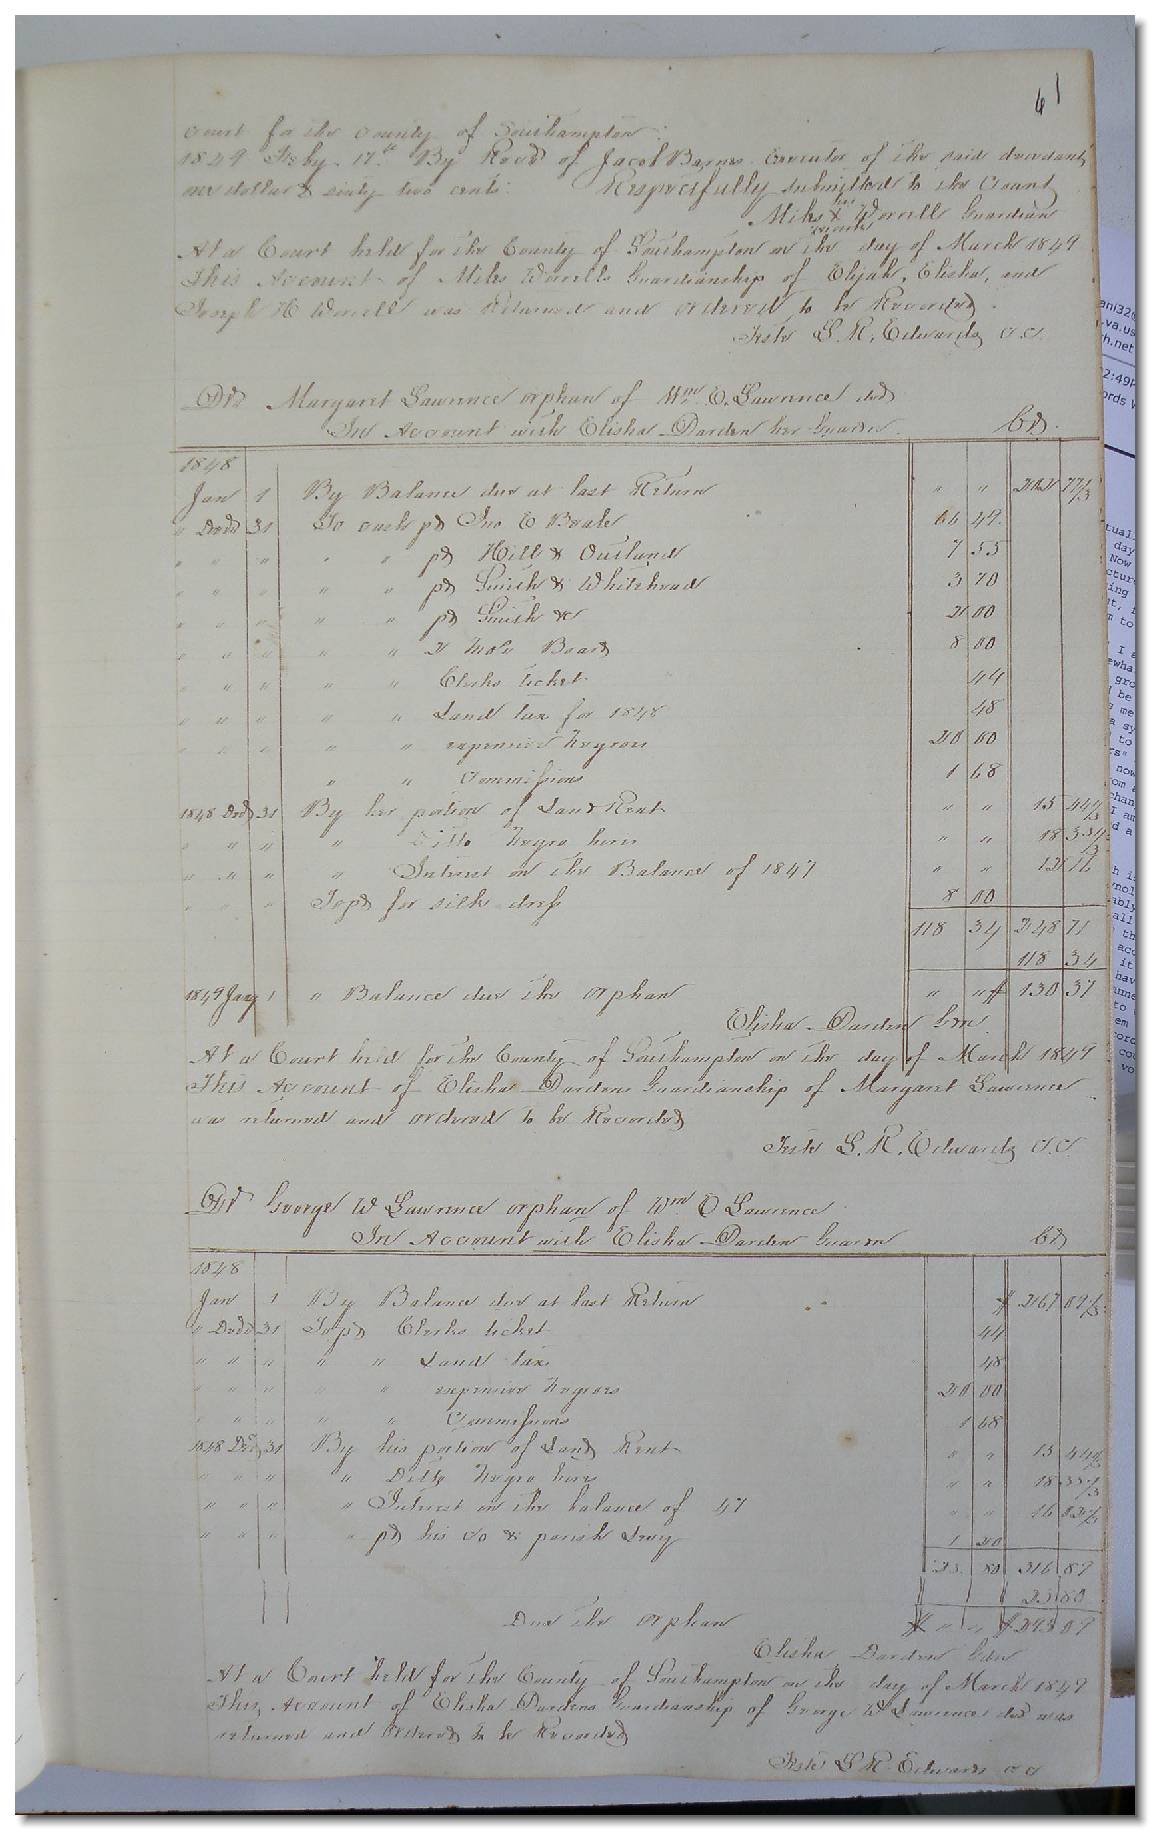 61
Court for the County of Southampton
1849 Feby 17th By Recd of Jacob Barnes Executor of the said decedent
one dollar & sixty two cents. Respectfully submitted to the Court
his
Miles X Worrell Guardian
mark
At a Court held for the County of Southampton on the day of March 1849
This Account of Miles Worrells Guardianship of Elijah, Elisha, and
Joseph H Worrell was Returned and Ordered to be Recorded
Teste L. R. Edwards C.C.
Dr Margaret Lawrence orphan of Wm. E. Lawrence decd
In Account with Elisha Darden her Guardn. Cr.
1848
Jan 1 By Balance due at last Return " " 202 77/3
" Decd 31 To cash pd Jno E Beale 66 49
" " " " " pd Hill & Outland 7 55
" " " " " pd Smith & Whitehead 3 70
" " " " " pd Smith &c 2 00
" " " " " 2 Mos Board 8 00
" " " " " Clerks ticket 44
" " " " " Land tax for 1848 48
" " " " " expensive Negroes 20 00
" " Commissions 1 68
1848 Decd 31 By her portion of Land Rent " " 15 44
" " " " Ditto Negro hires " " 18 33 1/3
" " " " Interest on the Balance of 1847 " " 12 16
" " " To pd for silk dress 8 00
118 34 248 71
118 34
1849 Jany 1 " Balance due the Orphan " " $ 130 37
Elisha Darden Gdn
At a Court held for the County of Southampton on the day of March 1849
This Account of Elisha Dardens Guardianship of Margaret Lawrence
was returned and ordered to be Recorded
Teste L. R. Edwards C.C.
Dr George W Lawrence orphan of Wm E Lawrence
In Account with Elisha Darden Guardn Cr
1848
Jan 1 By Balance due at last Return $ 267 09/3
" Decd 31 To pd Clerks ticket 44
" " " " " Land tax 48
" " " " " expensive Negroes 20 00
" " " " " Commissions 1 68
1848 Decd 31 By his portion of Land Rent " " 15 44
" " " " Ditto Negro hires " " 18 33 1/3
" " " " Interest on the balance of 47 " " 16 02
" " " " pd his Co & parish Levy 1 20
23 80 316 89
23 80
Due the Orphan $ " " $ 293 09
Elisha Darden Gdn
At a Court held for the County of Southampton on the day of March 1849
This Account of Elisha Dardens Guardianship of George W Lawrence decd was
returned and Ordered to be Recorded
Teste L R Edwards C C